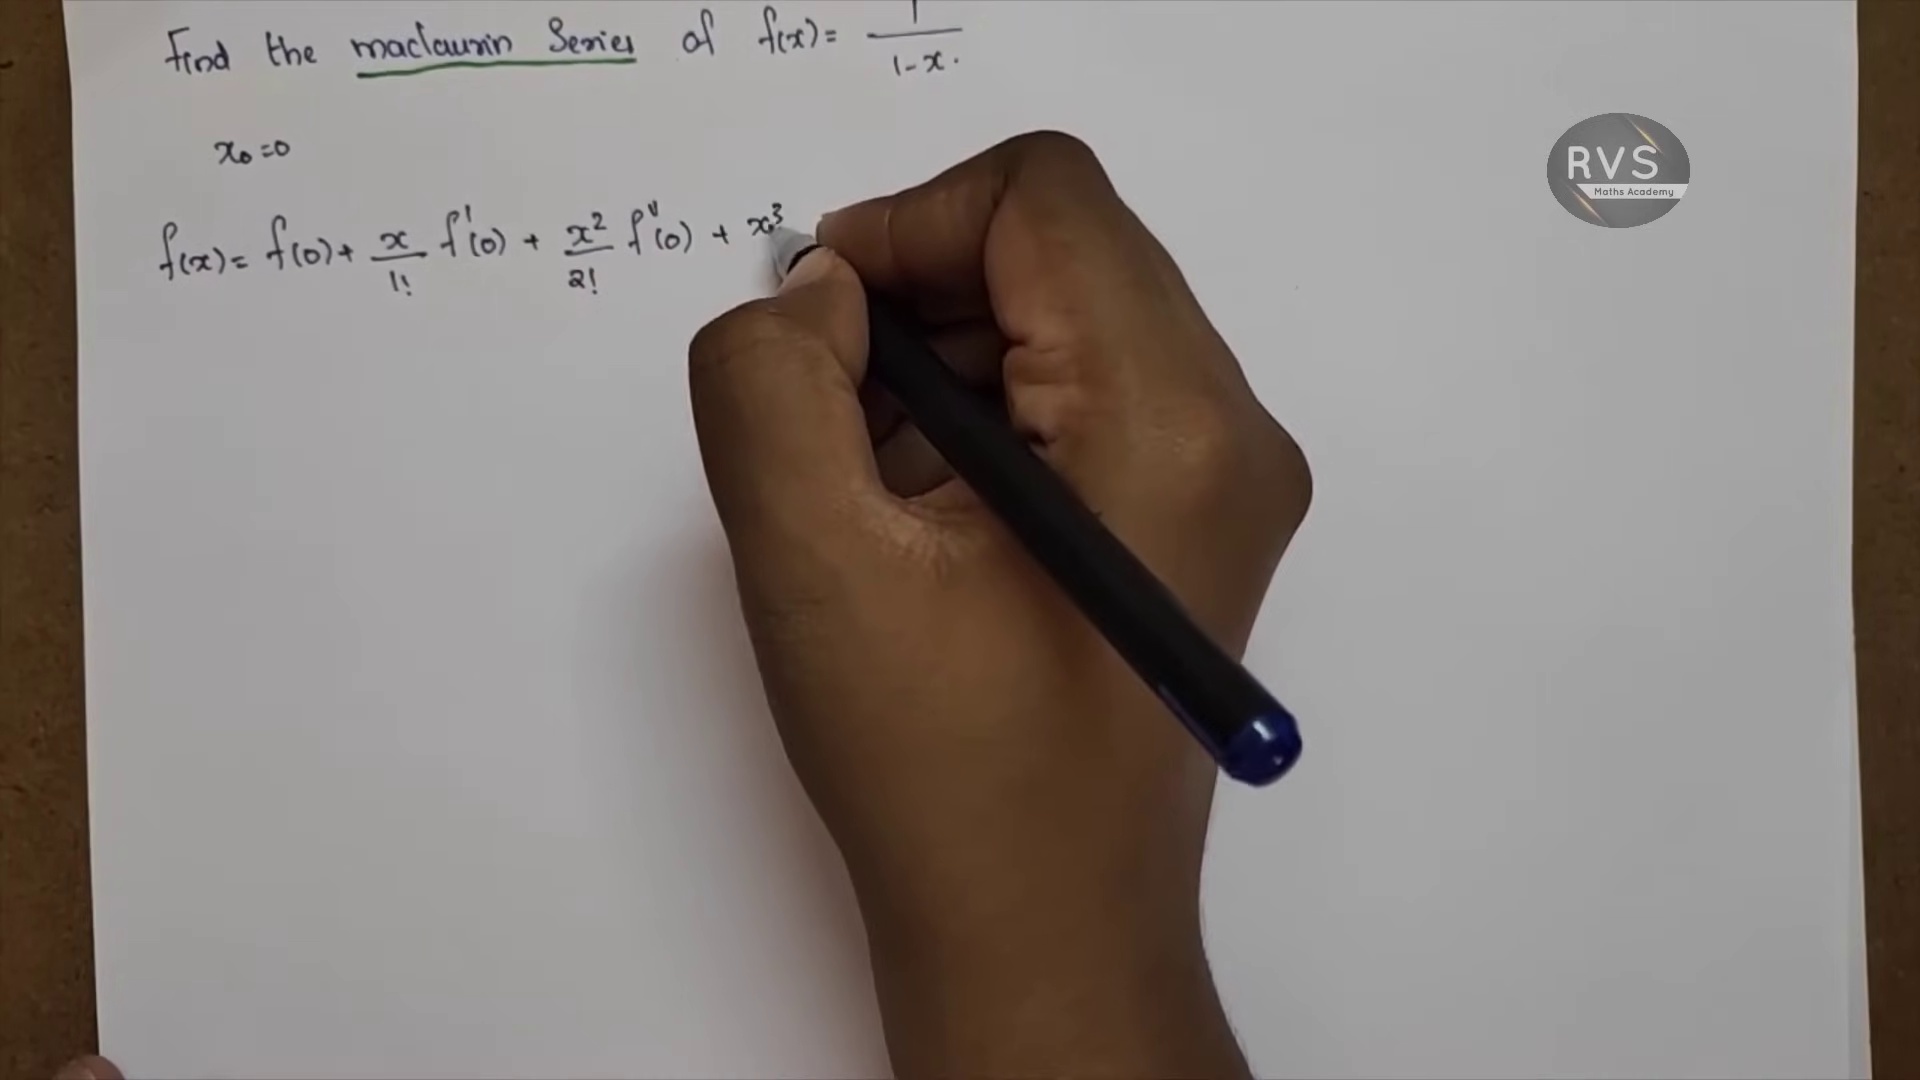 Find the maclaurin Series of f(x) = 1/1-x.
x₀=0
f(x) = f(0) + x/1! f'(0) + x²/2! f''(0) + x³
RVS
Maths Academy